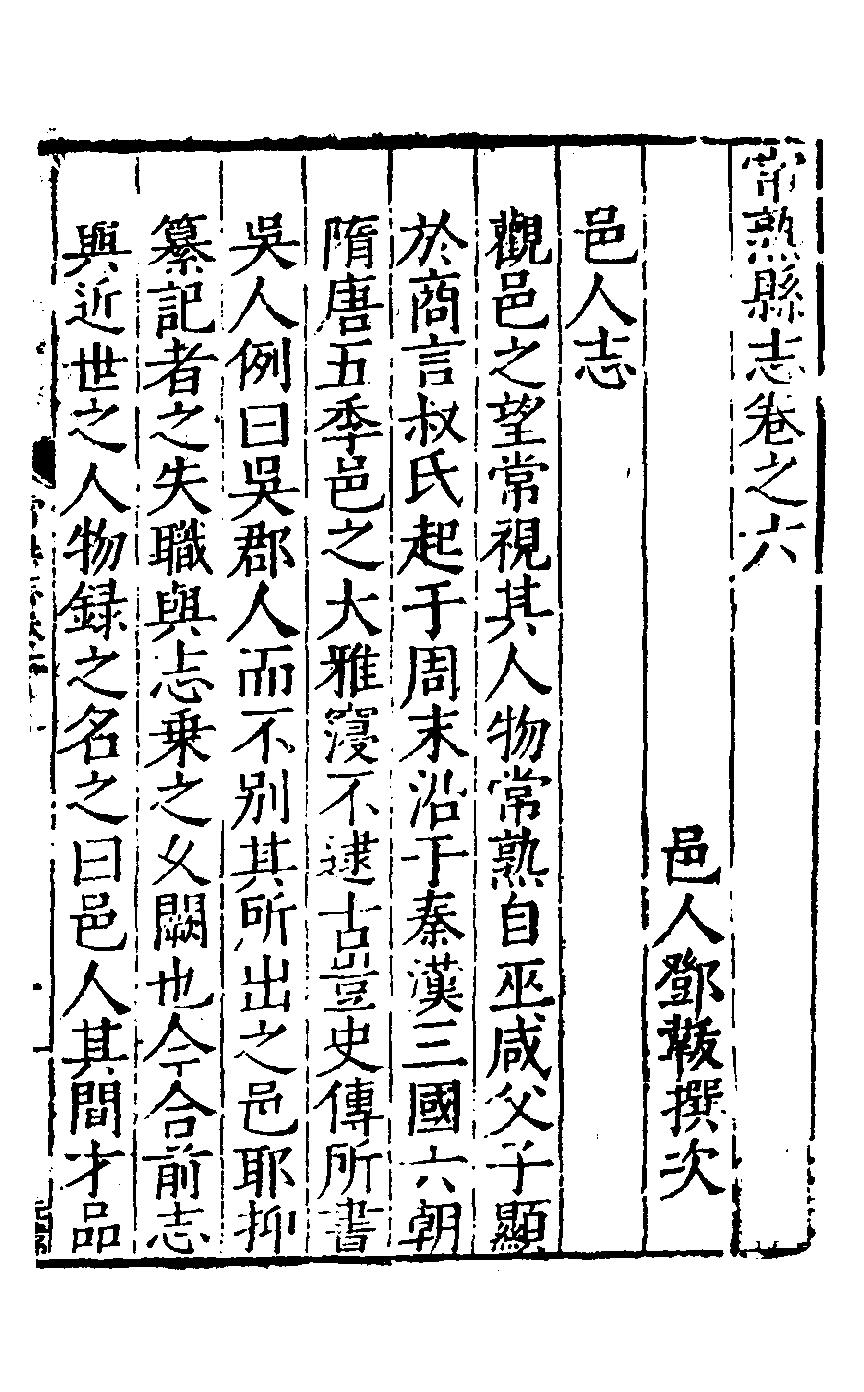 常熟縣志卷之六
邑人鄧韍撰次
邑人志
觀邑之望常視其人物常熟自巫咸父子顯
於商言叔氏起于周末沿于秦漢三國六朝
隋唐五季邑之大雅寖不逮古豈史傳所書
吳人例曰吳郡人而不別其所出之邑耶抑
纂記者之失職與志乗之乆闕也今合前志
與近世之人物録之名之曰邑人其間才品